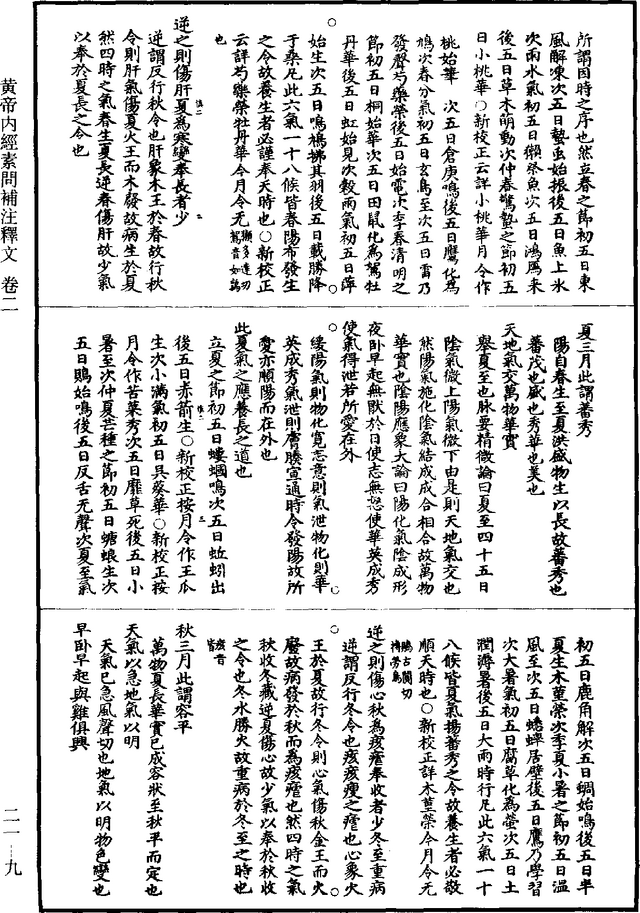 黄帝内經素問補注釋文 卷二
二一—九
所謂因時之序也然立春之節初五日東
風解凍次五日蟄虫始振後五日魚上氷
次雨水氣初五日獺祭魚次五日鴻鴈來
後五日草木萌動次仲春驚蟄之節初五
日小桃華○新校正云詳小桃華月令作
桃始華　次五日倉庚鳴後五日鷹化為
鳩次春分氣初五日玄鳥至次五日雷乃
發聲芍藥榮後五日始電次季春清明之
節初五日桐始華次五日田鼠化為鴽牡
丹華後五日虹始見次穀雨氣初五日萍
始生次五日鳴鳩拂其羽後五日戴勝降
于桑凡此六氣一十八候皆春陽布發生
之令故養生者必謹奉天時也○新校正
云詳芍藥榮牡丹華今月令无獺多達切鴽音如鵀
也
逆之則傷肝夏為寒變奉長者少
逆謂反行秋令也肝象木王於春故行秋
令則肝氣傷夏火王而木廢故病生於夏
然四時之氣春生夏長逆春傷肝故少氣
以奉於夏長之令也
夏三月此謂蕃秀
陽自春生至夏洪盛物生以長故蕃秀也
蕃茂也盛也秀華也美也
天地氣交萬物華實
舉夏至也脉要精微論曰夏至四十五日
陰氣微上陽氣微下由是則天地氣交也
然陽氣施化陰氣結成成合相合故萬物
華實也陰陽應象大論曰陽化氣陰成形
夜卧早起無猒於日使志無怒使華英成秀
使氣得泄若所愛在外
緩陽氣則物化寬志意則氣泄物化則華
英成秀氣泄則膚腠宣通時令發陽故所
愛亦順陽而在外也
此夏氣之應養長之道也
立夏之節初五日螻蟈鳴次五日蚯蚓出
後五日赤箭生○新校正按月令作王瓜
生次小滿氣初五日吴葵華○新校正按
月令作苦菜秀次五日靡草死後五日小
暑至次仲夏芒種之節初五日螗蜋生次
五日鵙始鳴後五日反舌无聲次夏至氣
初五日鹿角解次五日蜩始鳴後五日半
夏生木菫榮次季夏小暑之節初五日温
風至次五日蟋蟀居壁後五日鷹乃學習
次大暑氣初五日腐草化為螢次五日土
潤溽暑後五日大雨時行凡此六氣一十
八候皆夏氣揚蕃秀之令故養生者必敬
順天時也○新校正詳木菫榮今月令无
鵙古闃切
逆之則傷心秋為痎瘧奉收者少冬至重病
逆謂反行冬令也痎痎瘦之瘧也心象火
王於夏故行冬令則心氣傷秋金王而火
廢故病發於秋而為痎瘧也然四時之氣
秋收冬藏逆夏傷心故少氣以奉於秋收
之令也冬水勝火故重病於冬至之時也
痎音皆
秋三月此謂容平
萬物夏長華實已成容狀至秋平而定也
天氣以急地氣以明
天氣已急風聲切也地氣以明物色變也
早卧早起與雞俱興